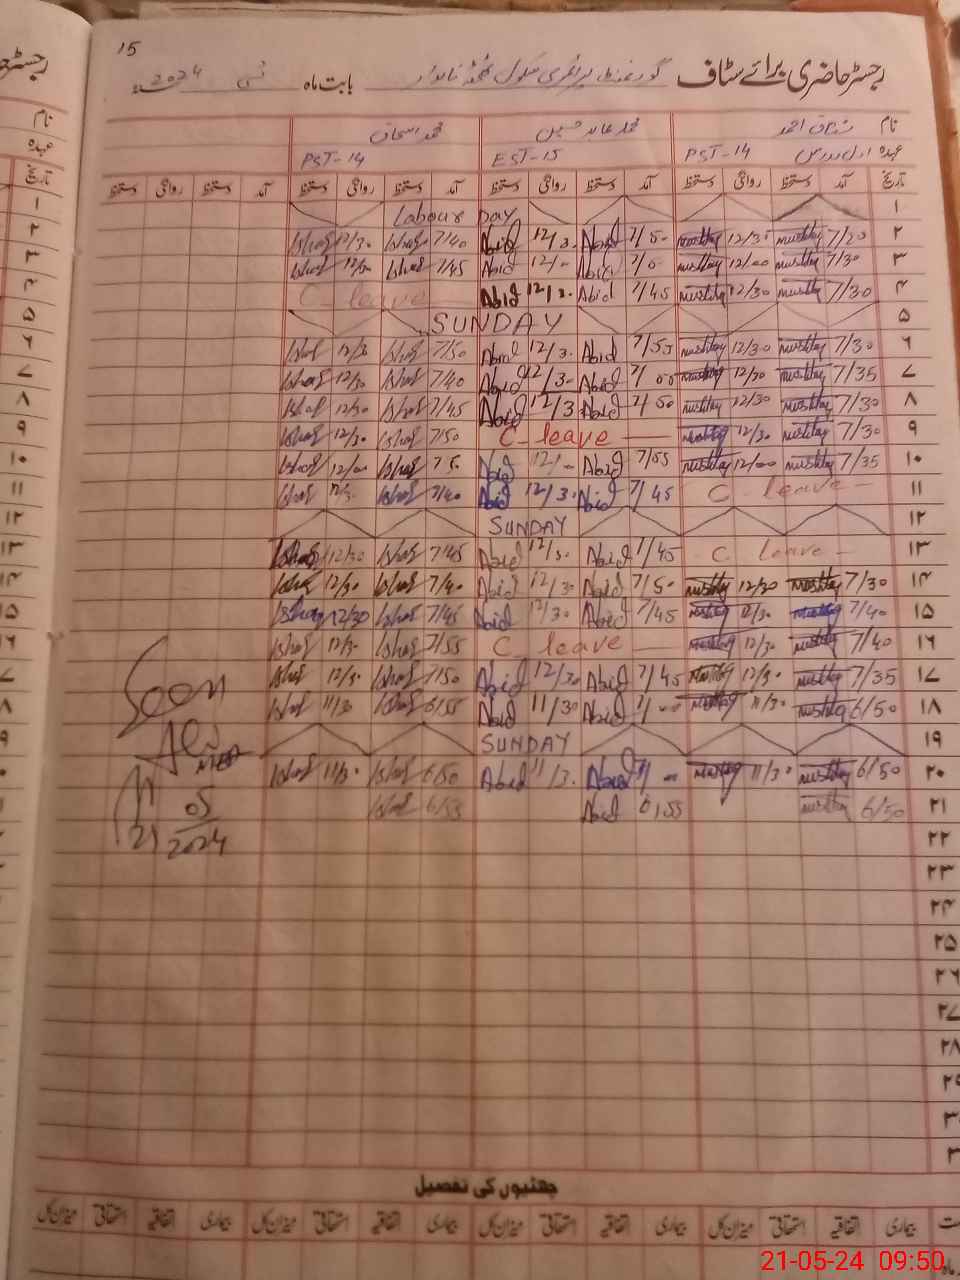 15
رجسٹر حاضری برائے سٹاف گورنمنٹ پرائمری سکول بابت ماہ مئی 2024
نام مشتاق احمد محمد عابد حسین محمد اسحاق
عہدہ اول مدرس PST-14 EST-15 PST-14
تاریخ آمد دستخط روانگی دستخط آمد دستخط روانگی دستخط آمد دستخط روانگی دستخط آمد دستخط روانگی دستخط
۱ Labour Day
۲ Ishaq 12/30 Ishaq 7/40 Abid 12/3. Abid 7/50 mushtaq 12/30 mushtaq 7/20
۳ Ishaq 12/00 Ishaq 7/45 Abid Abid mushtaq 12/00 mushtaq 7/30
۴ C_leave Abid 12/3. Abid 7/45 mushtaq 12/30 mushtaq 7/30
۵ SUNDAY
۶ Ishaq 12/30 Ishaq 7/50 Abid 12/3. Abid 7/55 mushtaq 12/30 mushtaq 7/30
۷ Ishaq 12/30 Ishaq 7/40 Abid 12/3. Abid mushtaq 12/30 mushtaq 7/35
۸ Ishaq 12/30 Ishaq 7/45 Abid 12/3. Abid 7/50 mushtaq 12/30 mushtaq 7/30
۹ Ishaq 12/30 Ishaq 7/50 C_leave mushtaq 12/30 mushtaq 7/30
۱۰ Ishaq 12/00 Ishaq Abid Abid 7/55 mushtaq 12/00 mushtaq 7/35
۱۱ Ishaq 12/3. Ishaq 7/40 Abid 12/3. Abid 7/45 C leave
۱۲ SUNDAY
۱۳ Ishaq 12/30 Ishaq 7/45 Abid 12/30 Abid 7/45 C leave
۱۴ Ishaq 12/30 Ishaq 7/40 Abid 12/30 Abid 7/50 mushtaq 12/30 mushtaq 7/30
۱۵ Ishaq 12/30 Ishaq 7/45 Abid 12/30 Abid 7/45 mushtaq 12/30 mushtaq 7/40
۱۶ Ishaq 12/30 Ishaq 7/55 C_leave mushtaq 12/30 mushtaq 7/40
۱۷ Ishaq 12/30 Ishaq 7/50 Abid 12/30 Abid 7/45 mushtaq 12/30 mushtaq 7/35
۱۸ Ishaq 11/30 Ishaq 6/55 Abid 11/30 Abid mushtaq 11/30 mushtaq 6/50
۱۹ SUNDAY
۲۰ Ishaq 11/30 Ishaq 6/50 Abid 11/3. Abid mushtaq 11/30 mushtaq 6/50
۲۱ Ishaq 6/55 Abid 6/55 mushtaq 6/50
Seen
21/05/2024
۲۲
۲۳
۲۴
۲۵
۲۶
۲۷
۲۸
چھٹیوں کی تفصیل
بیماری اتفاقیہ استحقاقی میزان کل بیماری اتفاقیہ استحقاقی میزان کل بیماری اتفاقیہ استحقاقی میزان کل بیماری اتفاقیہ استحقاقی میزان کل
21-05-24 09:50